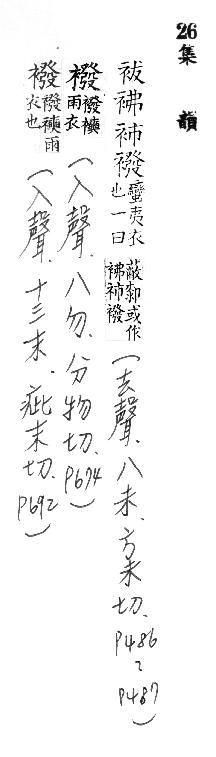 26集 韻
袚 䘠 𧘌 襏 蠻夷衣也一曰蔽厀或作䘠𧘌襏 (去聲、八未、方未切、P486~P487)
襏 襏襫雨衣 (入聲、八勿、分物切、P674)
襏 襏襫雨衣也 (入聲、十三末、北末切、P692)